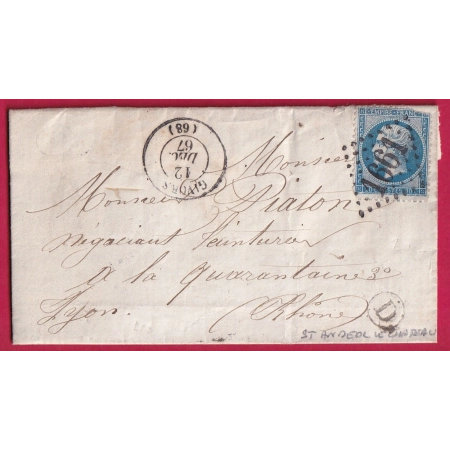 EMPIRE FRANC
1661
GIVORS
12
DEC.
67
(68)
Monsieur
Monsieur Piaton
négociant teinturier
à la quarantaine 30
Lyon. (Rhône)
D
ST ANDEOL LE